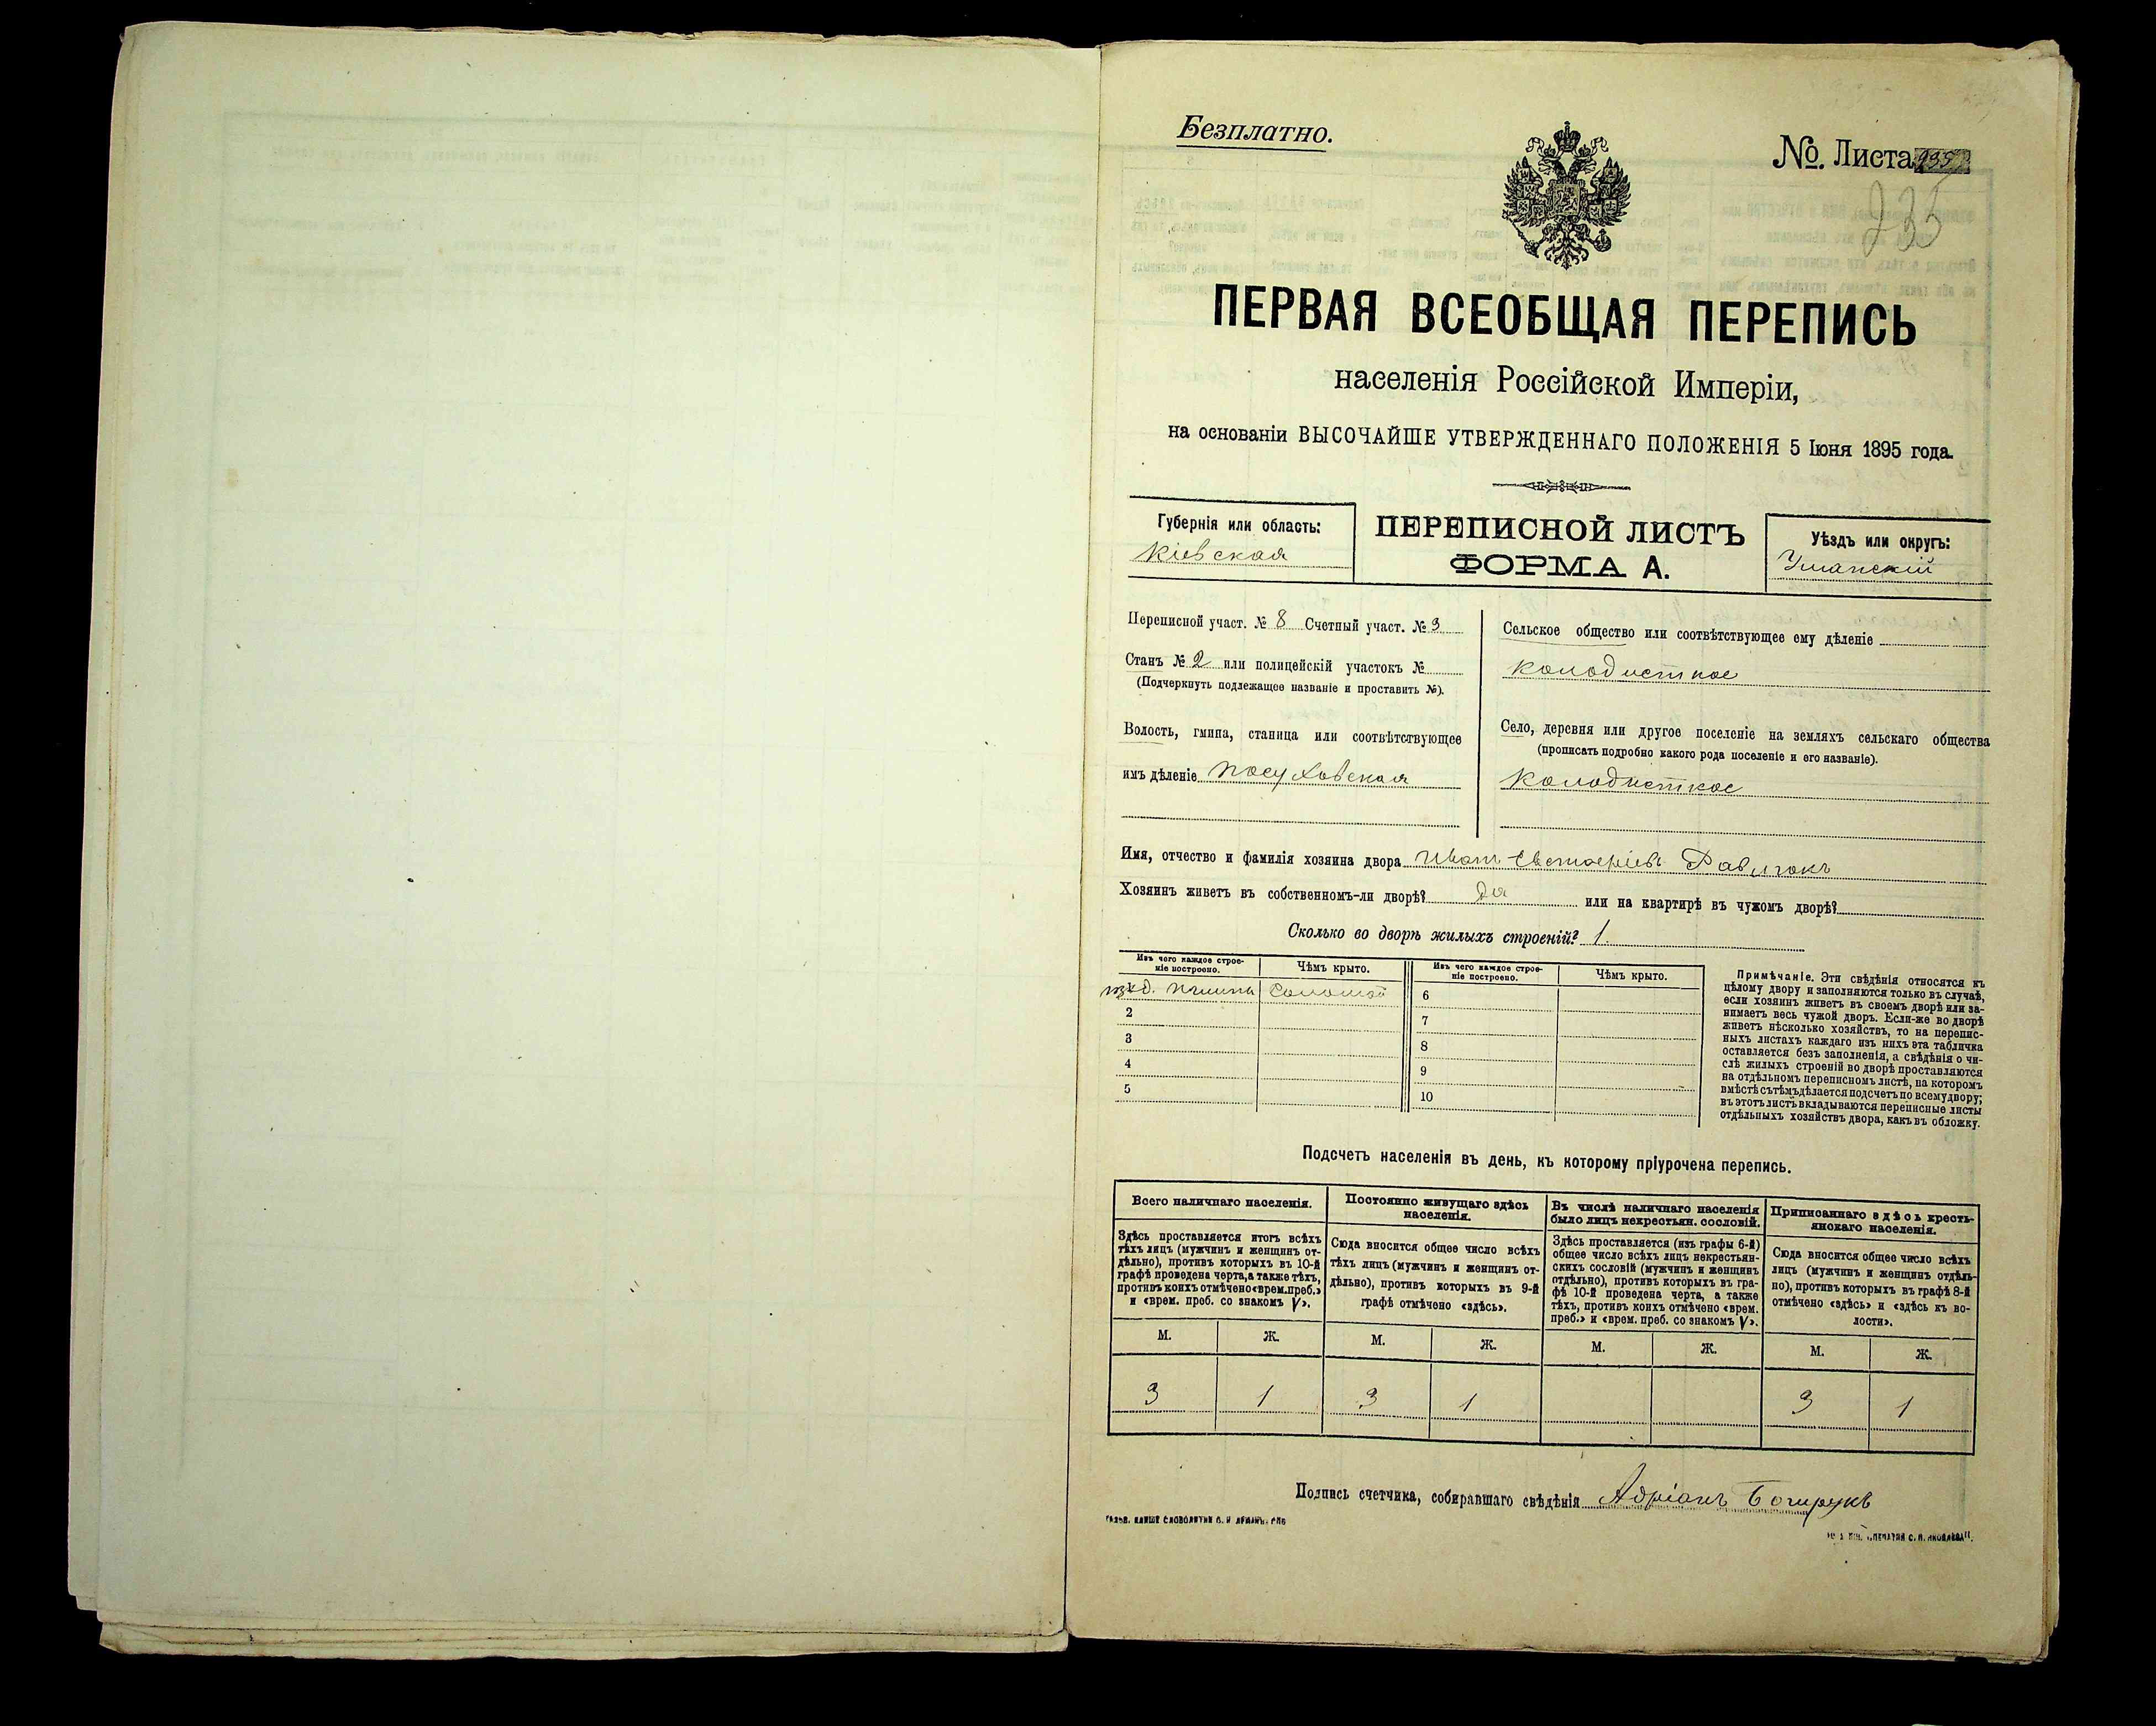 Безплатно.
№. Листа 235
235
ПЕРВАЯ ВСЕОБЩАЯ ПЕРЕПИСЬ
населенія Россійской Имперіи,
на основаніи ВЫСОЧАЙШЕ УТВЕРЖДЕННАГО ПОЛОЖЕНІЯ 5 Іюня 1895 года.
Губернія или область:
Кіевская
ПЕРЕПИСНОЙ ЛИСТЪ
ФОРМА А.
Уѣздъ или округъ:
Уманскій
Переписной участ. № 8 Счетный участ. № 3
Станъ № 2 или полицейскій участокъ №
(Подчеркнуть подлежащее названіе и проставить №).
Волость, гмина, станица или соотвѣтствующее
имъ дѣленіе Посуховская
Сельское общество или соотвѣтствующее ему дѣленіе
Колодистное
Село, деревня или другое поселеніе на земляхъ сельскаго общества
(прописать подробно какого рода поселеніе и его названіе).
Колодисткое
Имя, отчество и фамилія хозяина двора Иванъ Павлюкъ
Хозяинъ живетъ въ собственномъ-ли дворѣ? Да или на квартирѣ въ чужомъ дворѣ?
Сколько во дворѣ жилыхъ строеній? 1.
Изъ чего каждое строе-
ніе построено.
Чѣмъ крыто.
Изъ чего каждое строе-
ніе построено.
Чѣмъ крыто.
Соломой
6
2
7
3
8
4
9
5
10
Примѣчаніе. Эти свѣдѣнія относятся къ
цѣлому двору и заполняются только въ случаѣ,
если хозяинъ живетъ въ своемъ дворѣ или за-
нимаетъ весь чужой дворъ. Если-же во дворѣ
живетъ нѣсколько хозяйствъ, то на перепис-
ныхъ листахъ каждаго изъ нихъ эта табличка
оставляется безъ заполненія, а свѣдѣнія о чи-
слѣ жилыхъ строеній во дворѣ проставляются
на отдѣльномъ переписномъ листѣ, на которомъ
вмѣстѣ съ тѣмъ дѣлается подсчетъ по всему двору;
въ этотъ листъ вкладываются переписные листы
отдѣльныхъ хозяйствъ двора, какъ въ обложку.
Подсчетъ населенія въ день, къ которому пріурочена перепись.
Всего наличнаго населенія.
Здѣсь проставляется итогъ всѣхъ
тѣхъ лицъ (мужчинъ и женщинъ от-
дѣльно), противъ которыхъ въ 10-й
графѣ проведена черта, а также тѣхъ,
противъ коихъ отмѣчено «врем. преб.»
и «врем. преб. со знакомъ V».
Постоянно живущаго здѣсь
населенія.
Сюда вносится общее число всѣхъ
тѣхъ лицъ (мужчинъ и женщинъ от-
дѣльно), противъ которыхъ въ 9-й
графѣ отмѣчено «здѣсь».
Въ числѣ наличнаго населенія
было лицъ некрестьян. сословій.
Здѣсь проставляется (изъ графы 6-й)
общее число всѣхъ лицъ некрестьян-
скихъ сословій (мужчинъ и женщинъ
отдѣльно), противъ которыхъ въ гра-
фѣ 10-й проведена черта, а также
тѣхъ, противъ коихъ отмѣчено «врем.
преб.» и «врем. преб. со знакомъ V».
Приписаннаго здѣсь кресть-
янскаго населенія.
Сюда вносится общее число всѣхъ
лицъ (мужчинъ и женщинъ отдѣль-
но), противъ которыхъ въ графѣ 8-й
отмѣчено «здѣсь» и «здѣсь къ во-
лости».
М. Ж. М. Ж. М. Ж. М. Ж.
3 1 3 1 3 1
Подпись счетчика, собиравшаго свѣдѣнія Адріанъ